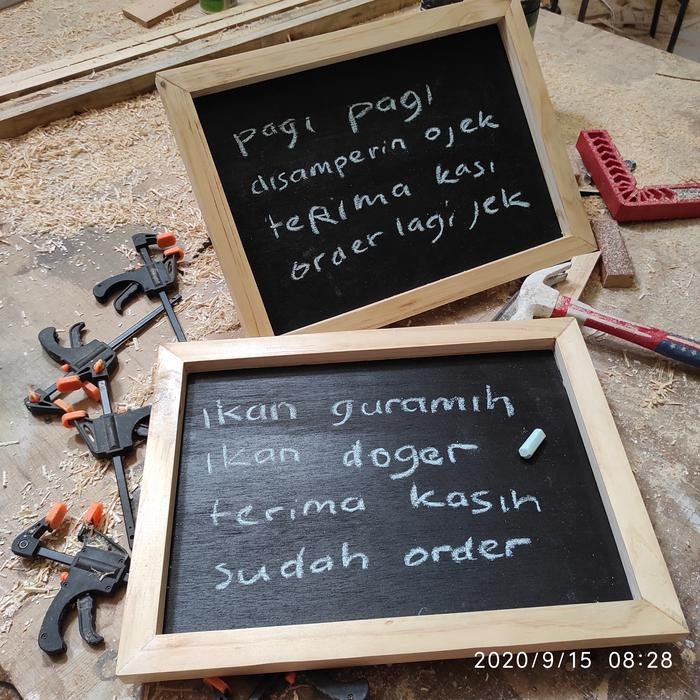 pagi pagi
disamperin ojek
teRima kasi
order lagi jek
ikan guramih
ikan doger
terima kasih
sudah order
2020/9/15 08:28